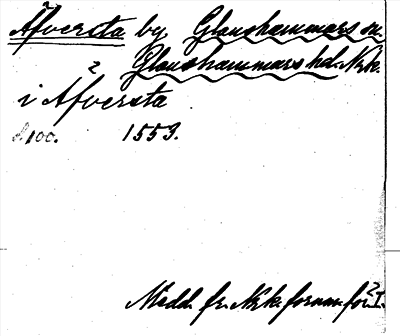 Åfversta by Glanshammars sn.
Glanshammars hd. Nrk.
i Åfversta
s. 100. 1553.
Medd. fr. Nrk. fornm. för. I.